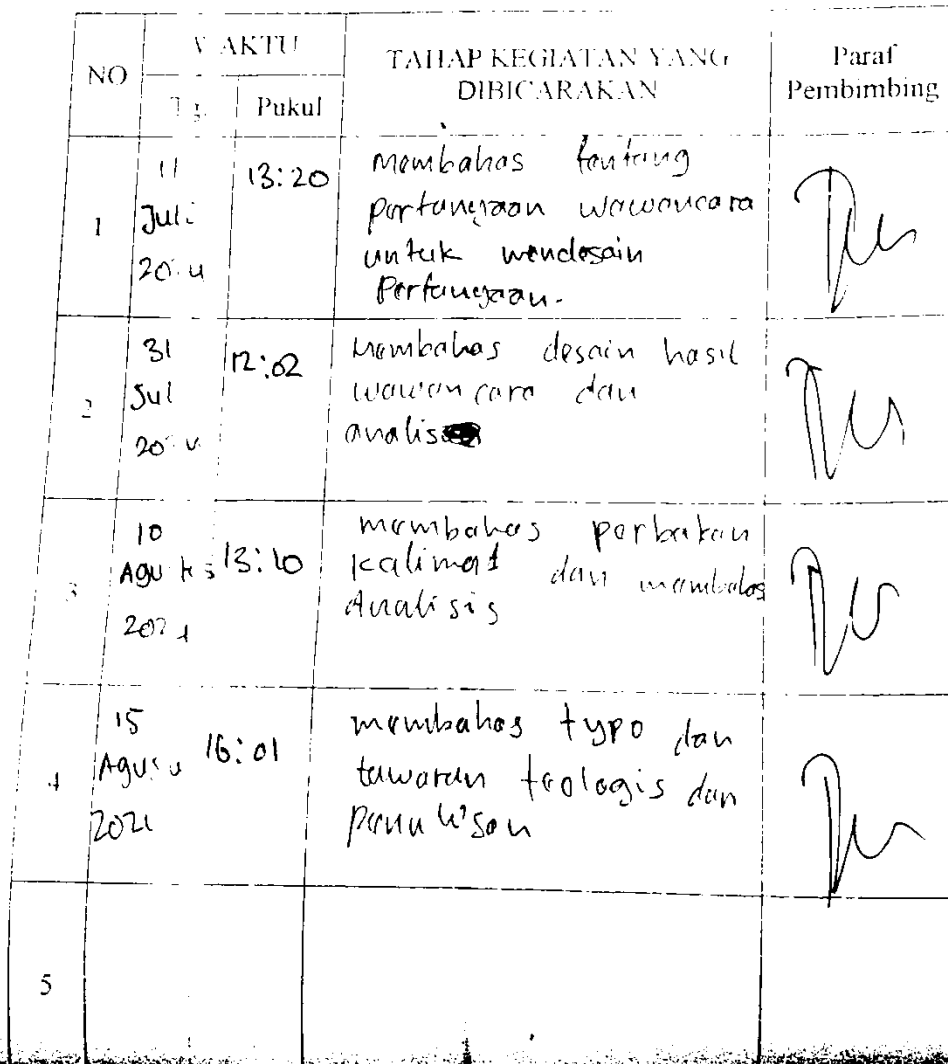 NO
WAKTU
Tgl.
Pukul
TAHAP KEGIATAN YANG
DIBICARAKAN
Paraf
Pembimbing
1
11
Juli
13:20
Membahas tentang
pertanyaan wawancara
untuk mendesain
Pertanyaan.
2
31
Jul
12:02
Membahas desain hasil
wawancara dan
analis
3
10
13:10
membahas perbaikan
kalimat dan membahas
Analisis
4
15
16:01
membahas typo dan
tawaran teologis dan
penulisan
5